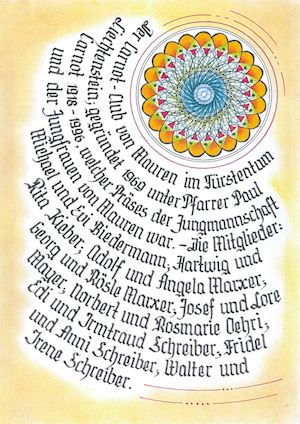 Der Carnot - Club von Mauren im Fürstentum
Liechtenstein; gegründet 1969 unter Pfarrer Paul
Carnot 1918 - 1996, welcher Präses der Jungmannschaft
und der Jungfrauen von Mauren war. – Die Mitglieder:
Michael und Evi Biedermann, Hartwig und
Rita Kieber, Adolf und Angela Marxer,
Georg und Rösle Marxer, Josef und Lore
Mayer, Norbert und Rosmarie Oehri,
Edi und Irmtraud Schreiber, Fridel
und Anni Schreiber, Walter und
Irene Schreiber.